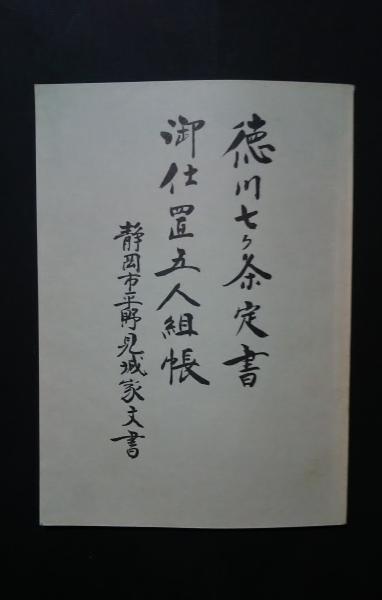 徳川七ヶ条定書
御仕置五人組帳
静岡市平野見城家文書